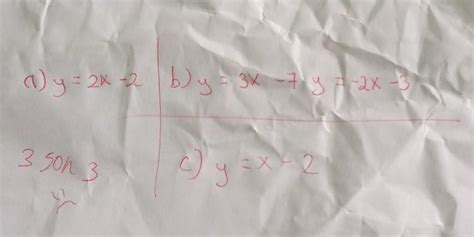 a) y = 2x - 2
b) y = 3x - 7 y = -2x - 3
3 son 3
c) y = x - 2